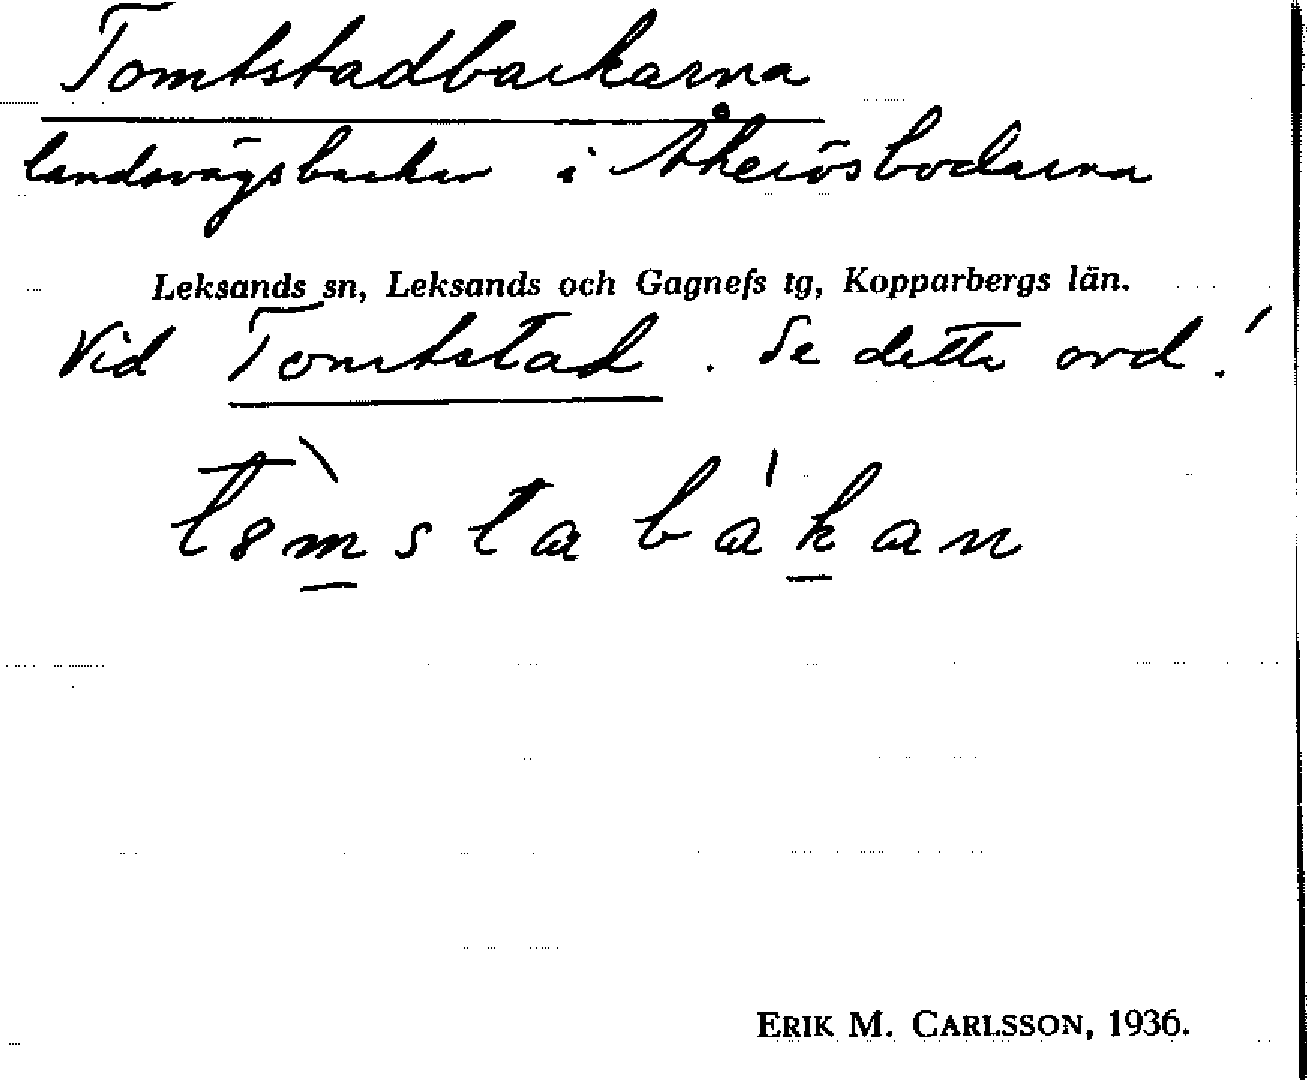 Tomtstadbackarna
landsvägsbackar i Åkerösbodarna
Leksands sn, Leksands och Gagnefs tg, Kopparbergs län.
Vid Tomtstad. Se detta ord!
tömstabákan
ERIK M. CARLSSON, 1936.